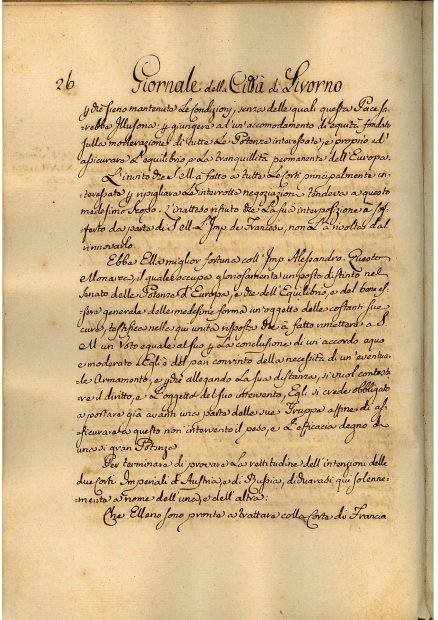 26 Giornale della Città di Livorno
p che sieno mantenute le Condizioni, senza delle quali questa Pace sa,
rebbe Illusoria; p giungere ad un'accomodamento di equità fondato
sulla moderazione di tutte le Potenze interessate, e proprio ad
assicurare l'equilibrio e la tranquillità permanente dell'Europa.
L'invito che S M à fatto a tutte le Corti principalmente in,
teressate p ripigliare le interrotte negoziazioni tendeva a questo
medesimo scopo. L'inatteso rifiuto che la sua interposizione à sof,
ferto da parte di S. M. L'Imp. de Francesi, non l'à invitata a
rinnovarlo.
Ebbe Ella miglior fortuna coll'Imp. Alessandro. Questo
Monarca, il quale occupa gloriosamente un posto distinto nel
Senato delle Potenze d'Europa, e che dell'Equilibrio, e del benes,
sere generale delle medesime forma un'oggetto delle costanti sue
cure, testifico nella qui unita risposta che à fatto rimettere a S.
M un Voto eguale al suo p la conclusione di un'accordo equo
e moderato. Egli è del pari convinto della necessità di un'eventua,
le Armamento, e p che allegando la sua distanza, si vuol contesta,
re il diritto, e l'oggetto del suo intervento, Egli si crede obbligato
a portare già avanti una parte delle sue Truppe affine di as,
sicurare a questo non intervento il peso, e l'efficacia degna di
una sì gran Potenza
Per terminare di provare la rettitudine dell'intenzioni delle
due Corti Imperiali d'Austria, e di Russia, dichiarasi qui solenne,
mente a nome dell'una, e dell'altra:
Che Elleno sono pronte a trattare colla Corte di Francia